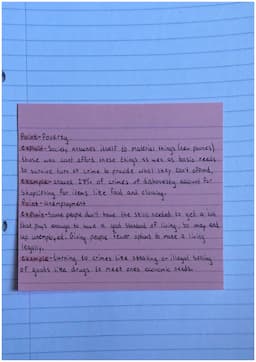 Point- Poverty
explain- Society assumes itself to material things (new phones)
those who cant afford these things as well as basic needs
to survive turn to crime to provide what they cant afford.
example- around 29% of crimes of dishonesty account for
shoplifting for items like food and clothing.
Point- unemployment
explain- Some people don't have the skills needed to get a job
that pays enough to have a good standard of living. So may end
up unemployed. Giving people fewer options to make a living
legally.
example- turning to crimes like stealing or illegal selling
of goods like drugs to meet ones economic needs.